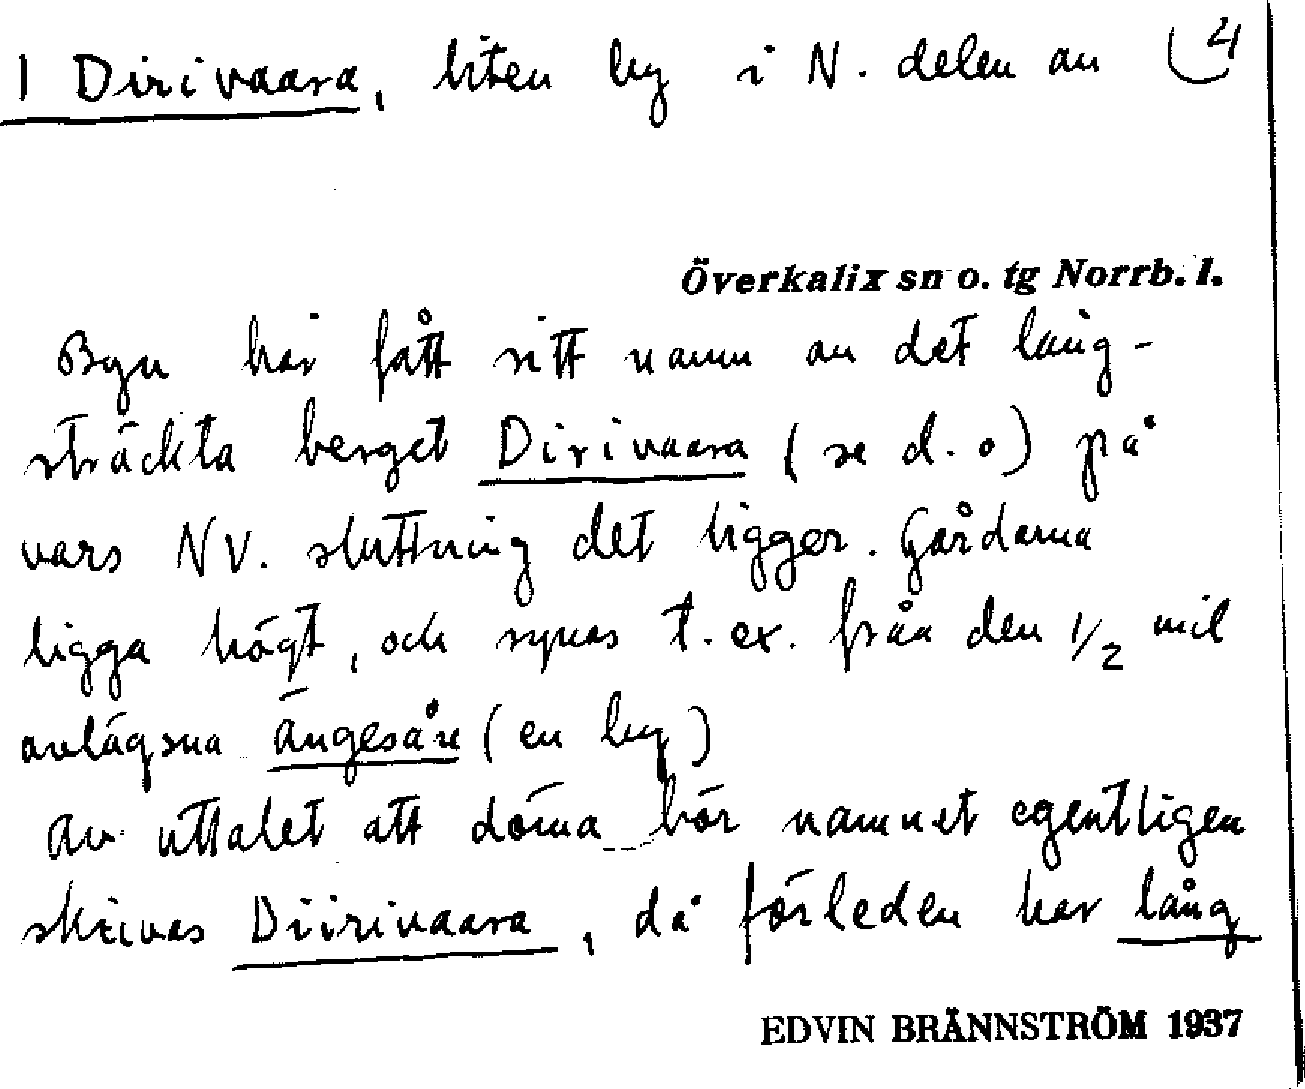 1 Dirivaara, liten by i N. delen av 4
Överkalix sn o. tg Norrb. l.
Byn har fått sitt namn av det lång-
sträckta berget Dirivaara (se d. o) på
vars NV. sluttning det ligger. Gårdarna
ligga högt, och synas t. ex. från den 1/2 mil
avlägsna Ängesån (en by)
Av uttalet att döma bör namnet egentligen
skrivas Diirivaara, då förleden har lång
EDVIN BRÄNNSTRÖM 1937